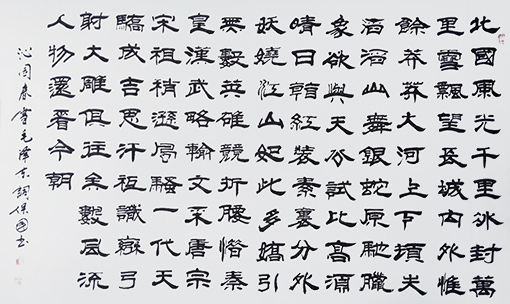 北國風光千里冰封萬
里雪飄望長城內外惟
餘莽莽大河上下頓失
滔滔山舞銀蛇原馳臘
象欲與天公試比高須
晴日看紅裝素裹分外
妖嬈江山如此多嬌引
無數英雄競折腰惜秦
皇漢武略輸文采唐宗
宋祖稍遜風騷一代天
驕成吉思汗祗識彎弓
射大雕俱往矣數風流
人物還看今朝
沁園春雪毛澤東詞保國書